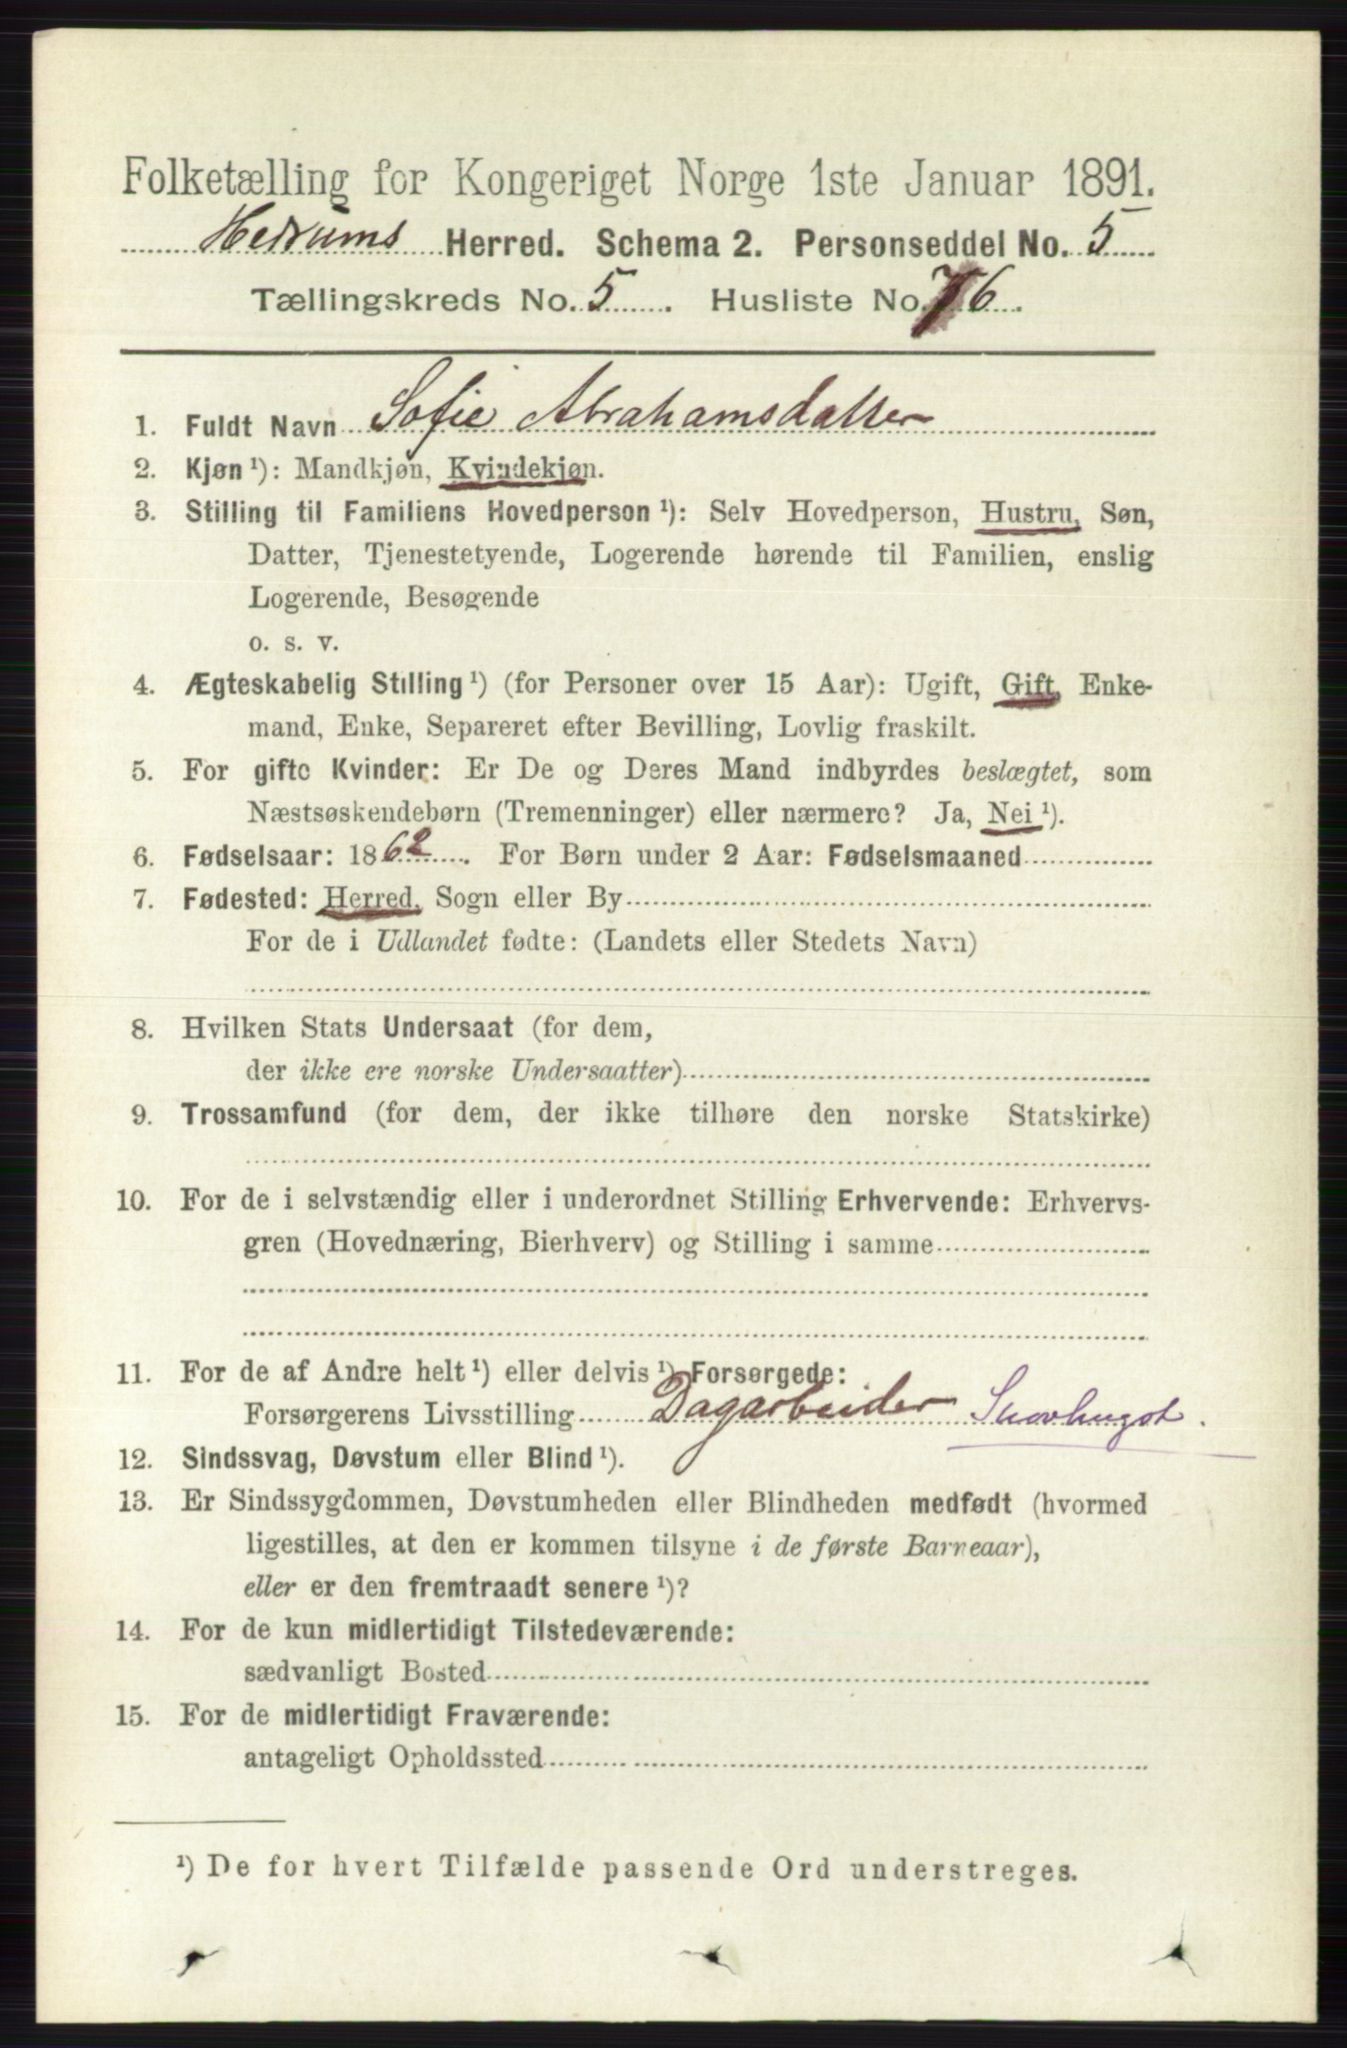 Folketælling for Kongeriget Norge 1ste Januar 1891.
Hedrums Herred. Schema 2. Personseddel No. 5
Tællingskreds No. 5. Husliste No. 76.
1. Fuldt Navn Sofie Abrahamsdatter
2. Kjøn ¹): Mandkjøn, Kvindekjøn.
3. Stilling til Familiens Hovedperson ¹): Selv Hovedperson, Hustru, Søn,
Datter, Tjenestetyende, Logerende hørende til Familien, enslig
Logerende, Besøgende
o. s. v.
4. Ægteskabelig Stilling ¹) (for Personer over 15 Aar): Ugift, Gift, Enke-
mand, Enke, Separeret efter Bevilling, Lovlig fraskilt.
5. For gifte Kvinder: Er De og Deres Mand indbyrdes beslægtet, som
Næstsøskendebørn (Tremenninger) eller nærmere? Ja, Nei ¹).
6. Fødselsaar: 1862. For Børn under 2 Aar: Fødselsmaaned
7. Fødested: Herred, Sogn eller By
For de i Udlandet fødte: (Landets eller Stedets Navn)
8. Hvilken Stats Undersaat (for dem,
der ikke ere norske Undersaatter)
9. Trossamfund (for dem, der ikke tilhøre den norske Statskirke)
10. For de i selvstændig eller i underordnet Stilling Erhvervende: Erhvervs-
gren (Hovednæring, Bierhverv) og Stilling i samme
11. For de af Andre helt ¹) eller delvis ¹) Forsørgede:
Forsørgerens Livsstilling Dagarbeider Skovhugst.
12. Sindssvag, Døvstum eller Blind ¹).
13. Er Sindssygdommen, Døvstumheden eller Blindheden medfødt (hvormed
ligestilles, at den er kommen tilsyne i de første Barneaar),
eller er den fremtraadt senere ¹)?
14. For de kun midlertidigt Tilstedeværende:
sædvanligt Bosted
15. For de midlertidigt Fraværende:
antageligt Opholdssted
¹) De for hvert Tilfælde passende Ord understreges.